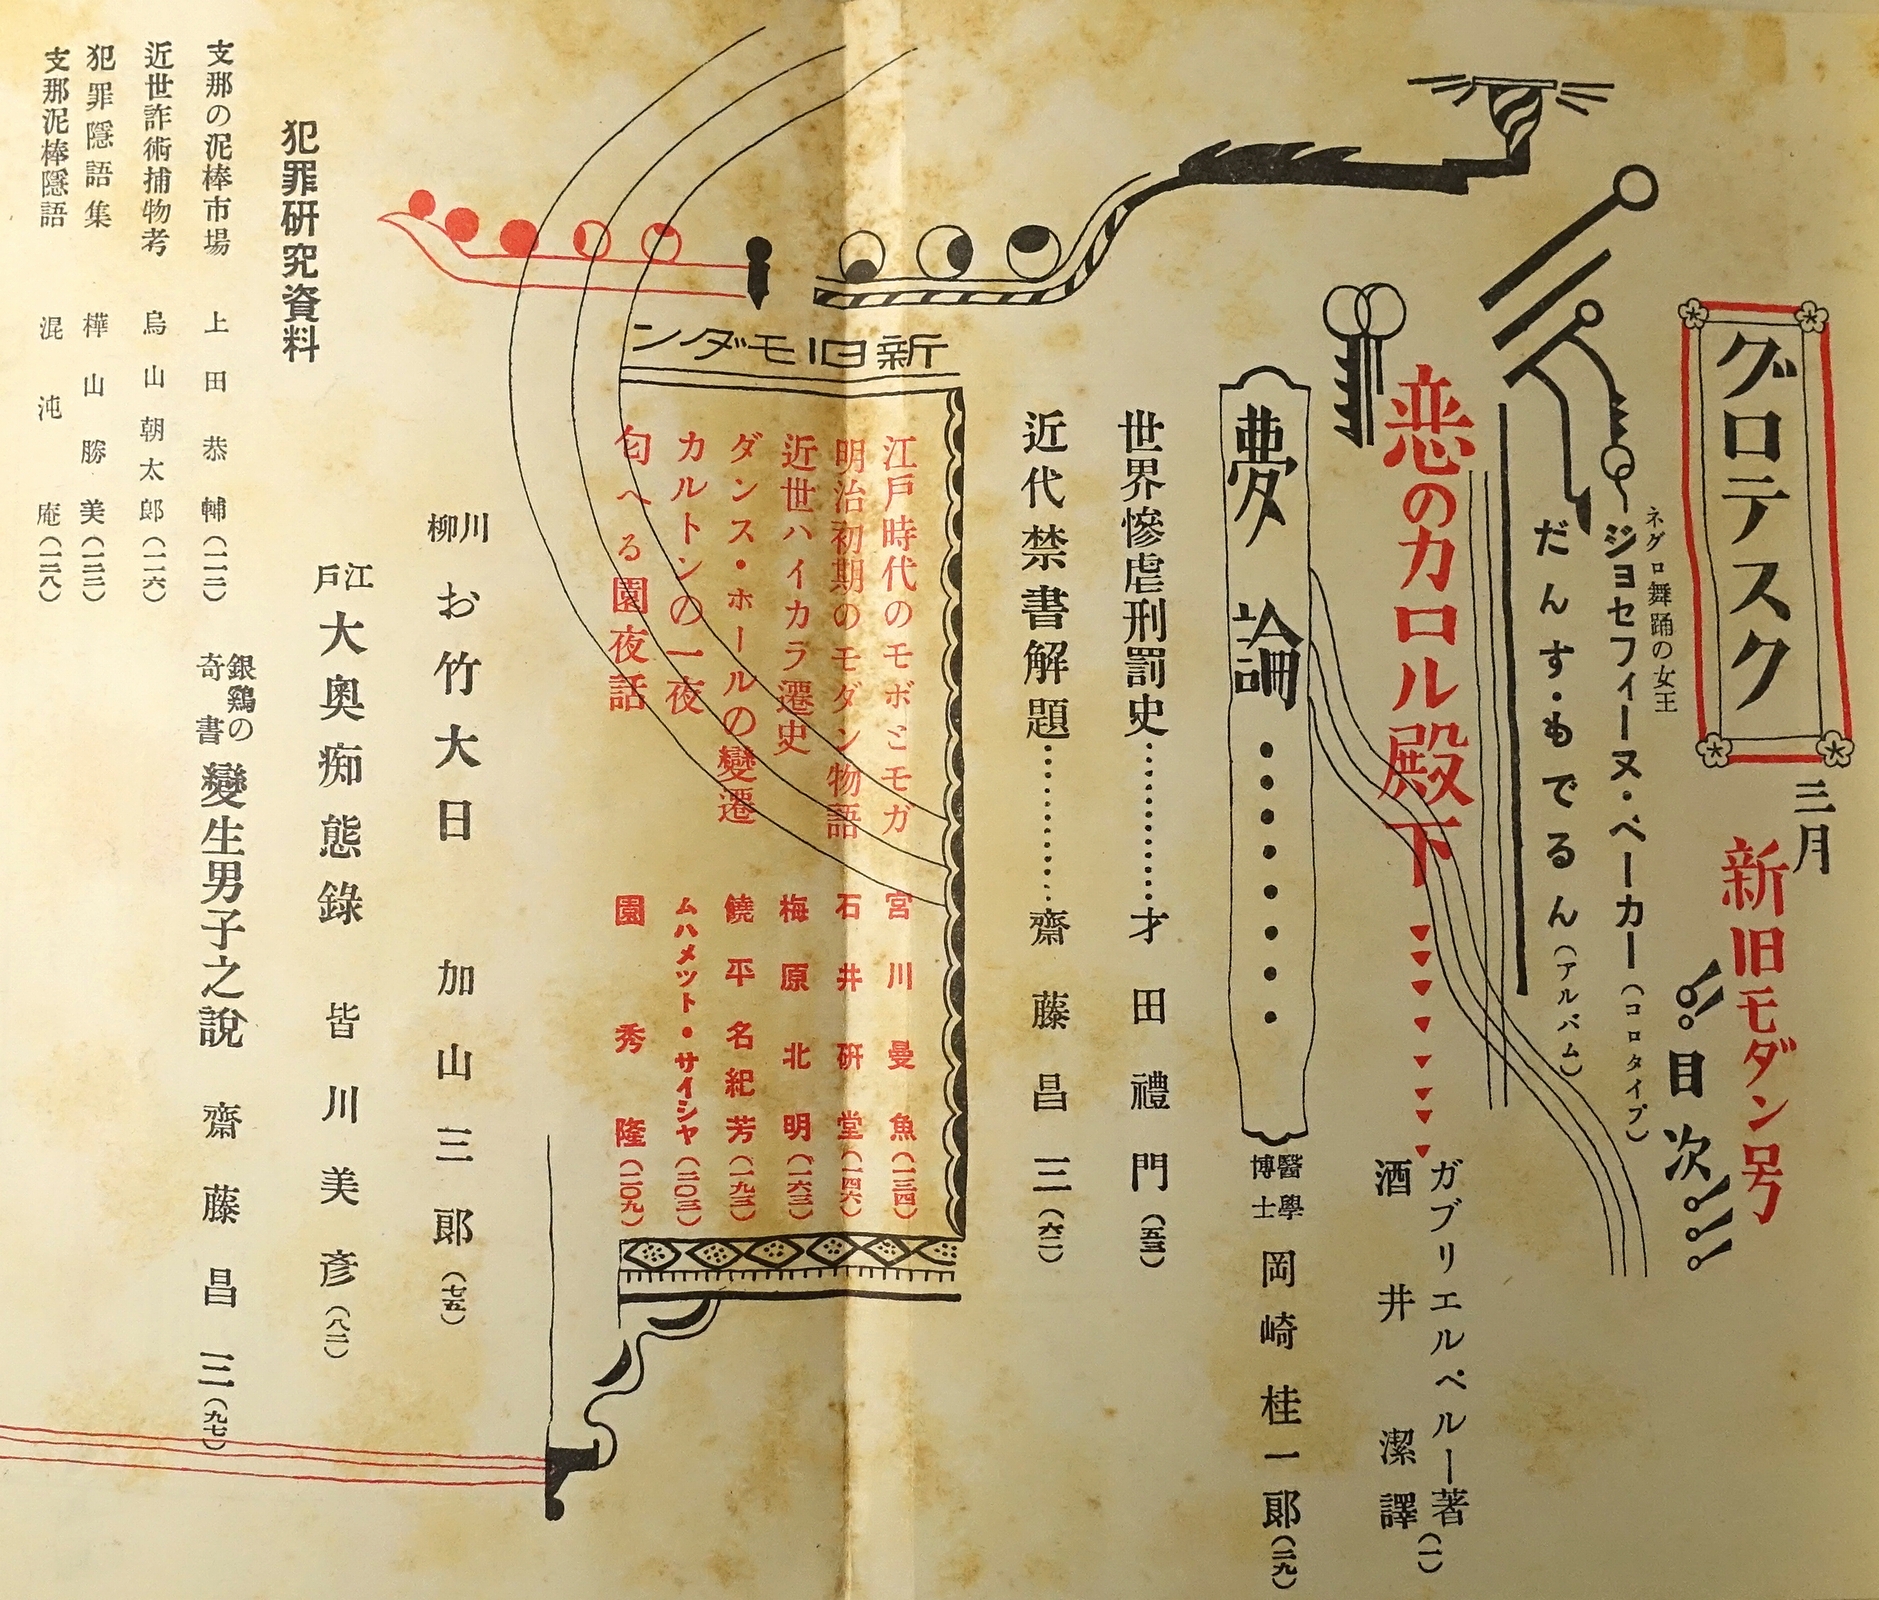 グロテスク
三月
新旧モダン号
目次
ネグロ舞踊の女王
ジョセフィーヌ・ベーカー(コロタイプ)
だんす・もでるん(アルバム)
恋のカロル殿下
ガブリエルペルー著
酒井潔譯(一)
夢論
醫學博士 岡崎桂一郎(二九)
世界慘虐刑罰史…………才田禮門(五三)
近代禁書解題…………齋藤昌三(六二)
新旧モダン
江戸時代のモボとモガ 宮川曼魚(一三四)
明治初期のモダン物語 石井研堂(一四六)
近世ハイカラ遷史 梅原北明(一六三)
ダンス・ホールの變遷 饒平名紀芳(一九三)
カルトンの一夜 ムハメツト・サイシヤ(二〇三)
匂へる園夜話 園秀隆(二〇九)
川柳 お竹大日 加山三郎(七五)
江戸 大奥痴態錄 皆川美彦(八二)
銀鷄の奇書 變生男子之說 齋藤昌三(九七)
犯罪研究資料
支那の泥棒市場 上田恭輔(一一二)
近世詐術捕物考 烏山朝太郎(一一六)
犯罪隱語集 樺山勝美(一二二)
支那泥棒隱語 混沌庵(一二八)